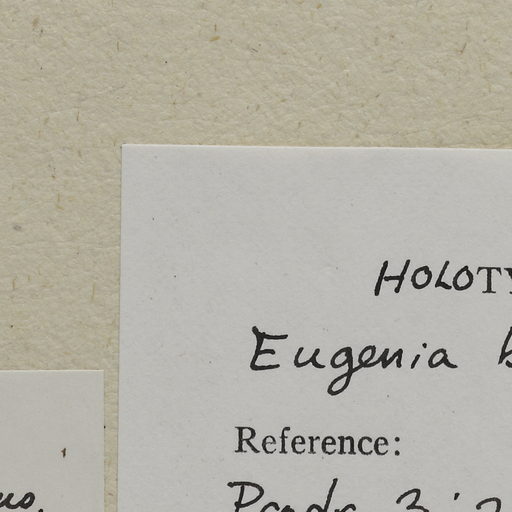 HOLOTY
Eugenia b
Reference:
Prodr. 3:2